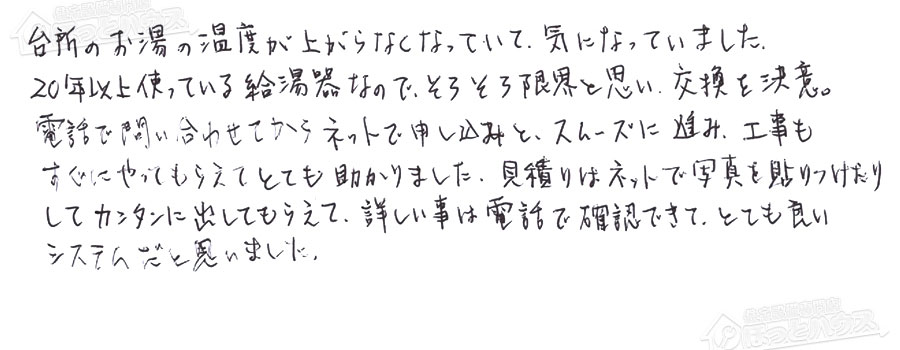 台所のお湯の温度が上がらなくなっていて、気になっていました。
20年以上使っている給湯器なので、そろそろ限界と思い、交換を決意。
電話で問い合わせてから ネットで申し込みと、スムーズに進み、工事も
すぐにやってもらえてとても助かりました。見積りはネットで写真を貼りつけたり
してカンタンに出してもらえて、詳しい事は電話で確認できて、とても良い
システムだと思いました。
ほっとハウス
ほっとハウス